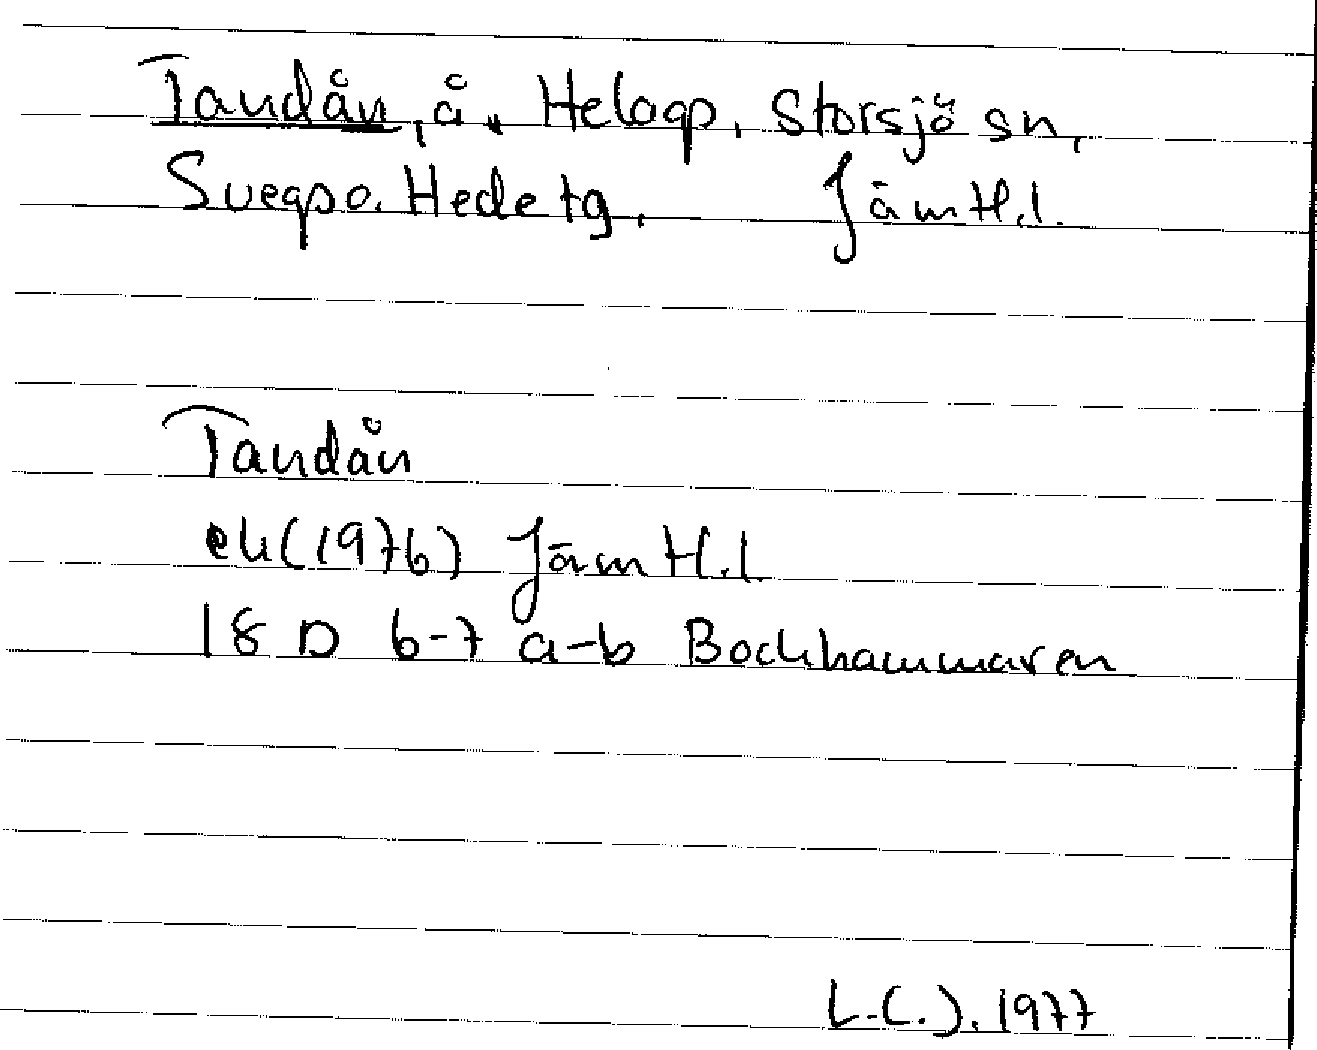 Tandån, å, Helagp. Storsjö sn,
Svegsp o. Hede tg, Jämtl.l.
Tandån
ek (1976) Jämtl.l
18 D 6-7 a-b Bockhammaren
L.C.J. 1977